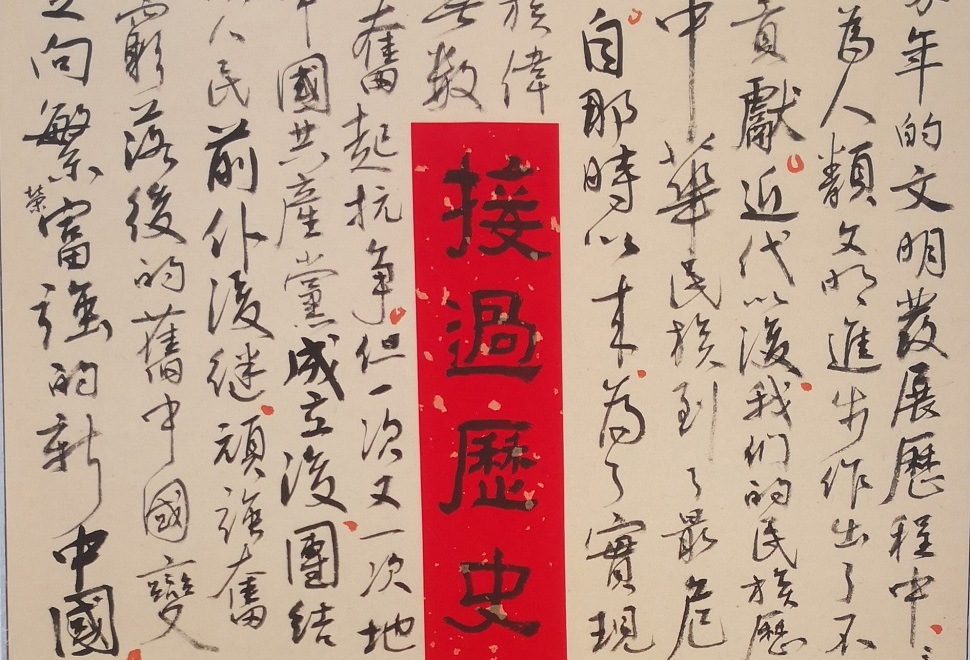 年的文明發展歷程中
為人類文明進步作出了不
貢獻近代以後我们的民族歷
中華民族到了最危
自那時以来為了實現
族偉
數
接過歷史
奮起抗争但一次又一次地
中國共産黨成立後團結
人民前仆後继頑强奮
窮落後的舊中國變
向繁榮富强的新中國